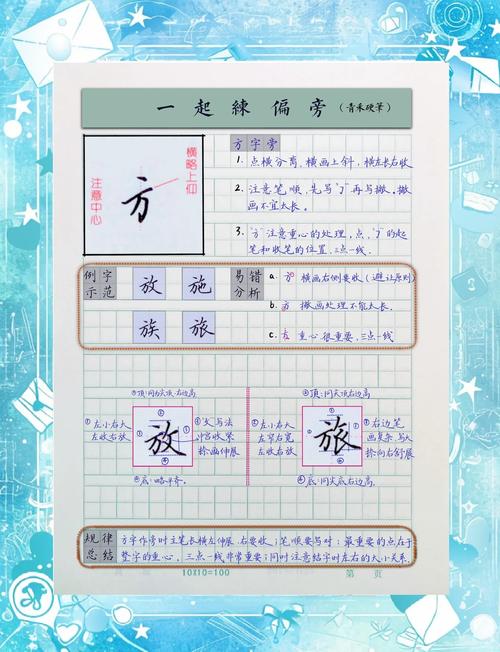 一起練偏旁（青禾硬筆）
方字旁
横略上仰
注意中心
方
1. 点横分离，横画上斜，横左长右收
2. 注意笔顺，先写"㇆"再写撇，撇
画不宜太长。
3. "方"注意重心的处理，点，"㇆"的起
笔和收笔的位置，三点一线。
例字
示范
放 施
族 旅
易错
分析
a. 方 横画右侧要收（避让原则）
b. 方 撇画处理不能太长。
c. 方 重心很重要，三点一线
③顶：同为尖顶，右边高
①左小右大
左收右放
放
⑤文与法
中宫收紧
捺画伸展
④底：略平齐。
③顶：同尖顶，右边高
①左小右大
②左窄右宽
左收右放
旅
⑤右边笔
画复杂，写大
捺向右舒展
④底：同尖底右边高
规律
总结
方字作旁时主笔长横左伸展，右要收；笔顺要写对；最重要的点在于
整字的重心，三点一线非常重要；同时注意结字时左右的大小关系。
10X10=100
第 页